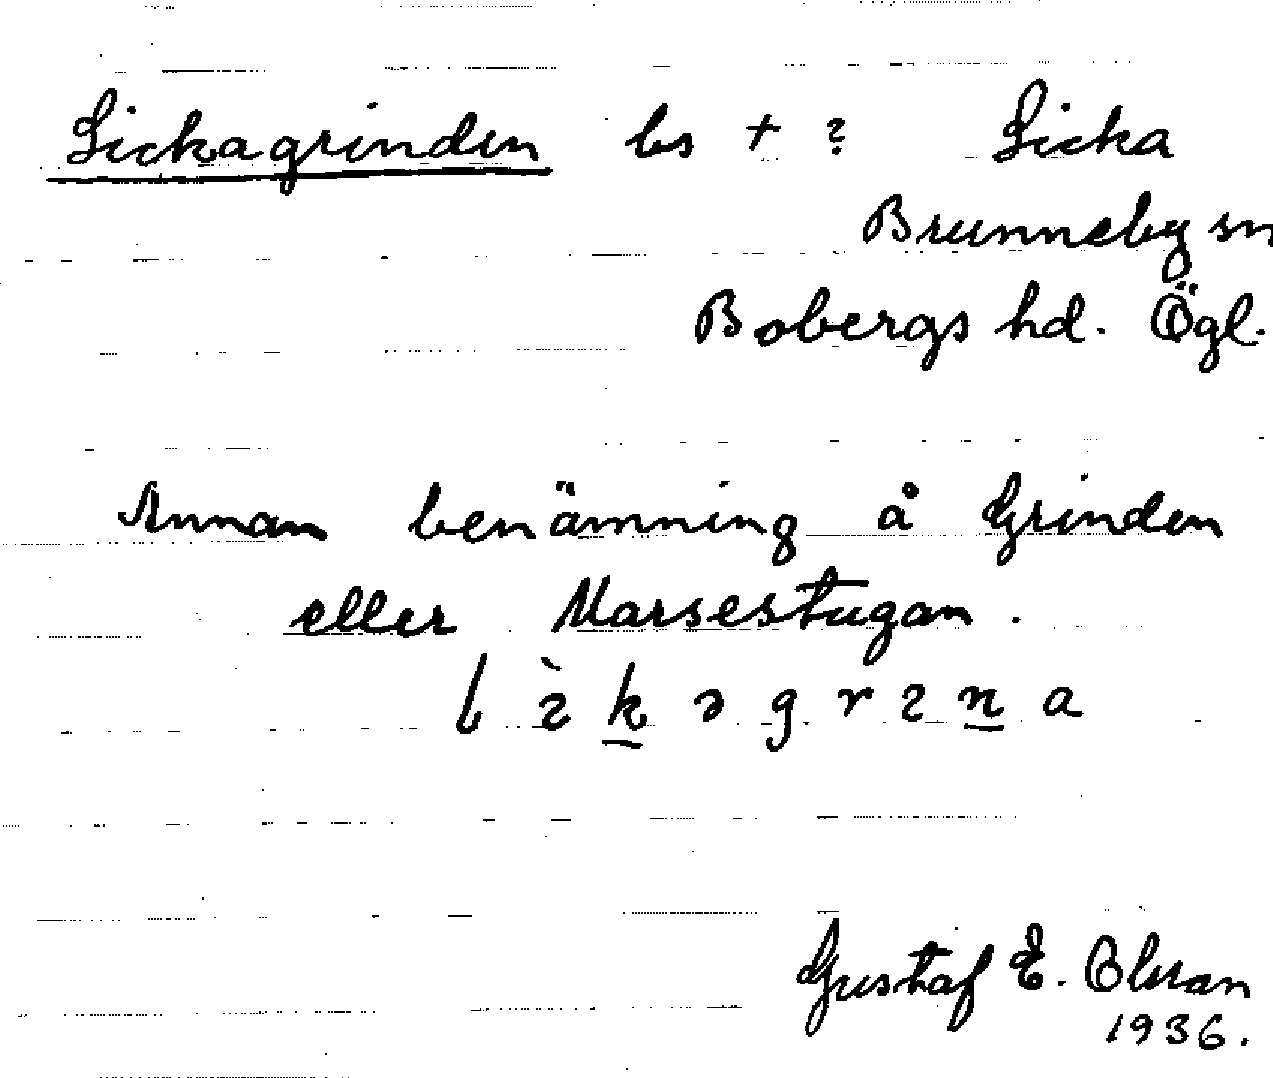 Lickagrinden bs + ? Licka
Brunneby sn
Bobergs hd. Ögl.
Annan benämning å Grinden
eller Marsestugan.
Gustaf E.
1936.